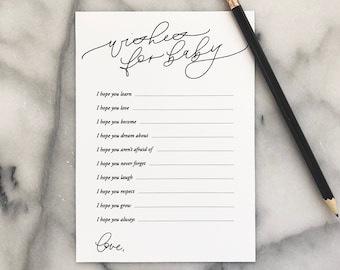 wishes
for baby
I hope you learn
I hope you love
I hope you become
I hope you dream about
I hope you aren't afraid of
I hope you never forget
I hope you laugh
I hope you respect
I hope you grow
I hope you always
love,